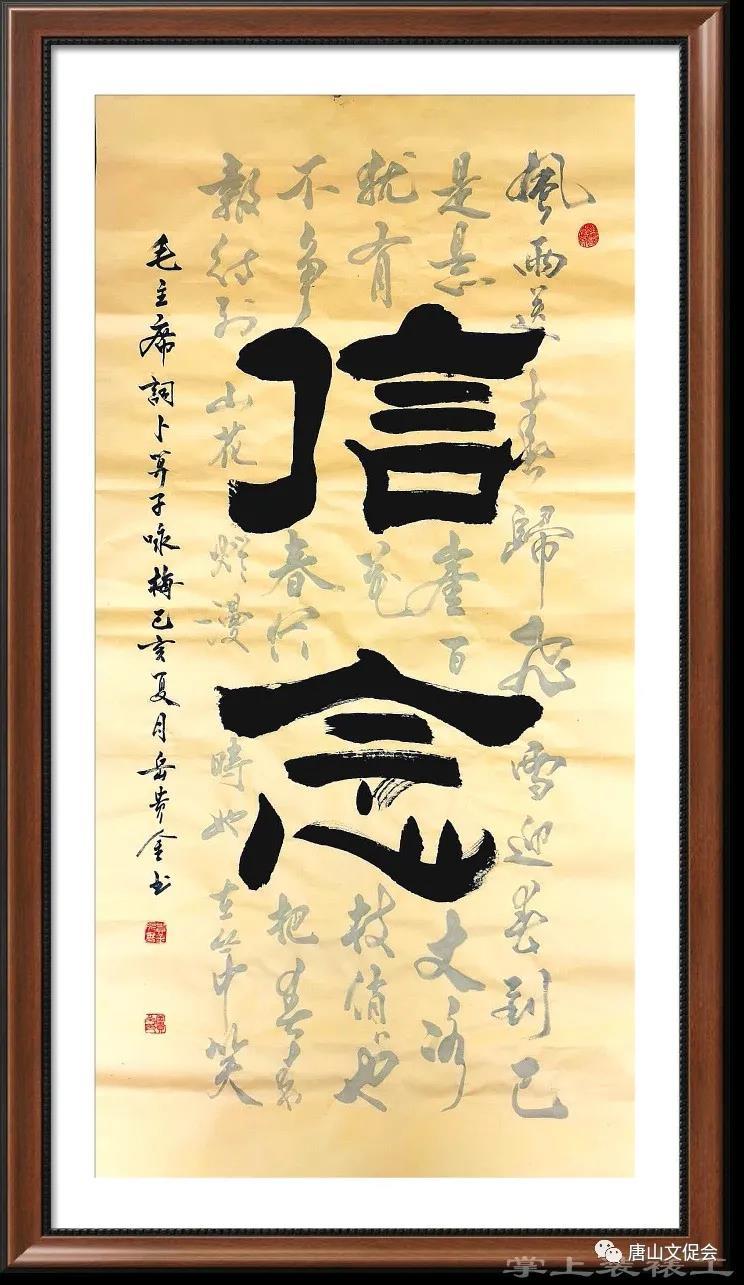 信念
風雨送春歸飛雪迎春到已
是懸崖百丈冰
猶有花枝俏也
不爭春只把春來
報待到山花爛漫時她在叢中笑
毛主席詞卜算子咏梅己亥夏月岳贵金书
唐山文促会
掌上装裱工